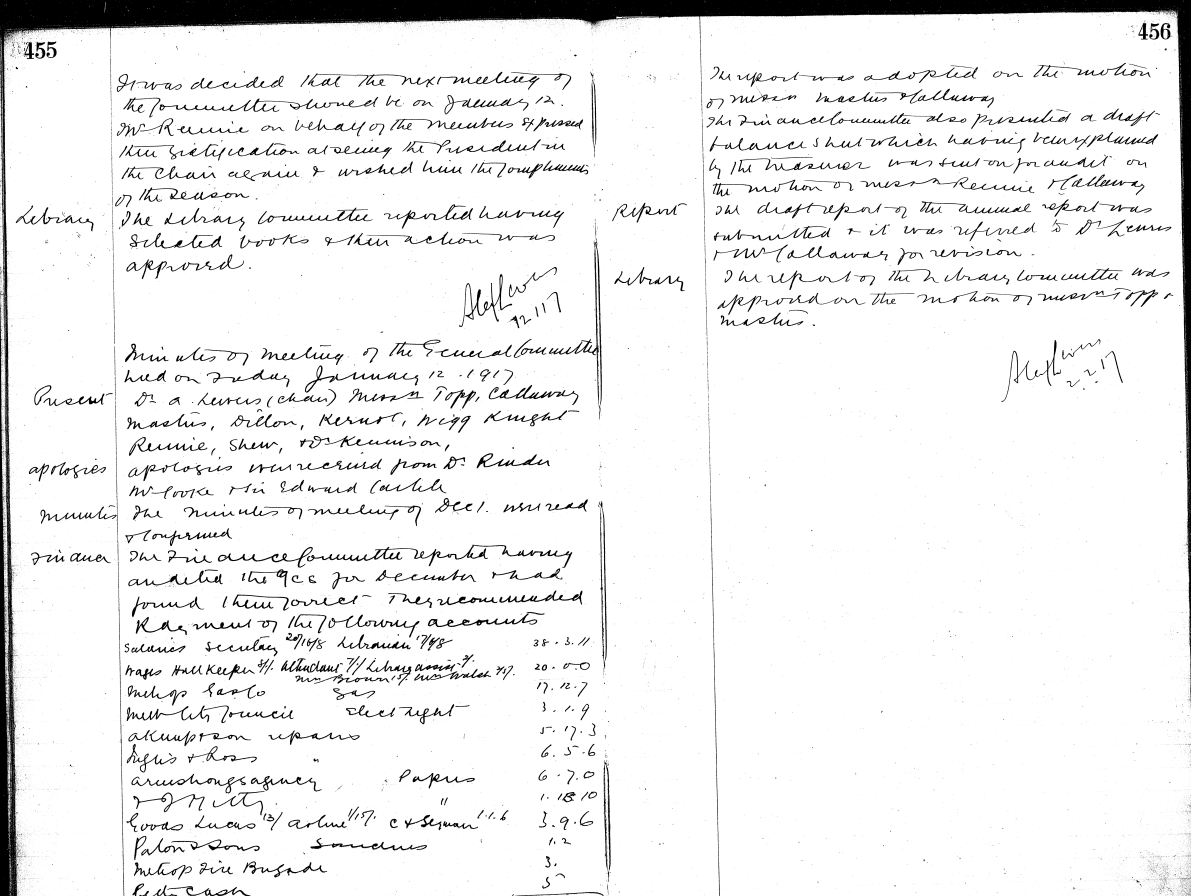 455
It was decided that the next meeting of
the Committee should be on January 12.
Mr Rennie on behalf of the members expressed
their gratification at seeing the President in
the Chair again & wished him the Compliments
of the Season.
Library The Library Committee reported having
selected books & their action was
approved.
Alex Lewers
12.1.17
Minutes of meeting of the General Committee
held on Friday January 12. 1917
Present Dr A. Lewers (chair) Messrs Topp, Callaway
Masters, Dillon, Kernot, Wigg Knight
Rennie, Shew, & Dr Kennison,
apologies apologies were received from Dr Rinder
Mr Cooke & Sir Edward
Minutes The minutes of meeting of Dec 1. were read
& confirmed
Finance The Finance Committee reported having
audited the a/cs for December & had
found them correct They recommended
Payment of the following accounts
Salaries Secretary Librarian 38.3.11
Wages Hall Keeper Attendant Library assist
Mrs Brown Mrs Walsh 20.0.0
Metrop Gas Co Gas 17.12.7
Melb City Council Elect Light 3.1.9
& son repairs 5.17.3
Inglis & Ross " 6.5.6
Armstrongs agency Papers 6.7.0
" 1.18.10
Goods Lucas 13/ 1.1.6 3.9.6
Paton & Sons Sundries 1.2
Metrop Fire Brigade 3.
Petty Cash 5
456
The report was adopted on the motion
of Messrs Masters & Callaway
The Finance Committee also presented a draft
balance sheet which having been explained
by the treasurer was sent on for audit on
the motion of Messrs Rennie & Callaway
Report The draft report of the annual report was
submitted & it was referred to Dr Lewers
& Mr Callaway for revision.
Library The report of the Library Committee was
approved on the motion of Messrs Topp &
Masters.
Alex Lewers
2.2.17